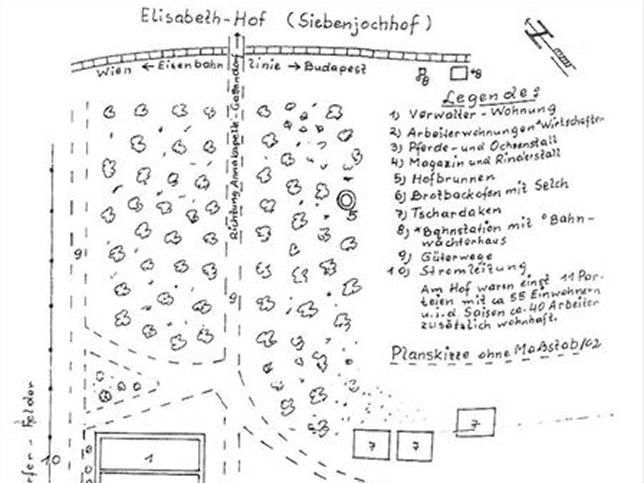 Elisabeth-Hof (Siebenjochhof)
Wien ← Eisenbahn linie → Budapest
8
*8
Richtung Annakapelle-Gattendorf
Legende:
1) Verwalter-Wohnung
2) Arbeiterwohnungen *Wirtschafter
3) Pferde-und Ochsenstall
4) Magazin und Rinderstall
5) Hofbrunnen
6) Brotbackofen mit Selch
7) Tschardaken
8) *Bahnstation mit °Bahn-
wächterhaus
9) Güterwege
10) Stromleitung
Am Hof waren einst 11 Par-
teien mit ca 55 Einwohnern
u.i.d. Saison ca. 40 Arbeiter
zusätzlich wohnhaft.
Planskizze ohne Maßstab/02
5
9
9
10
1
7
7
7